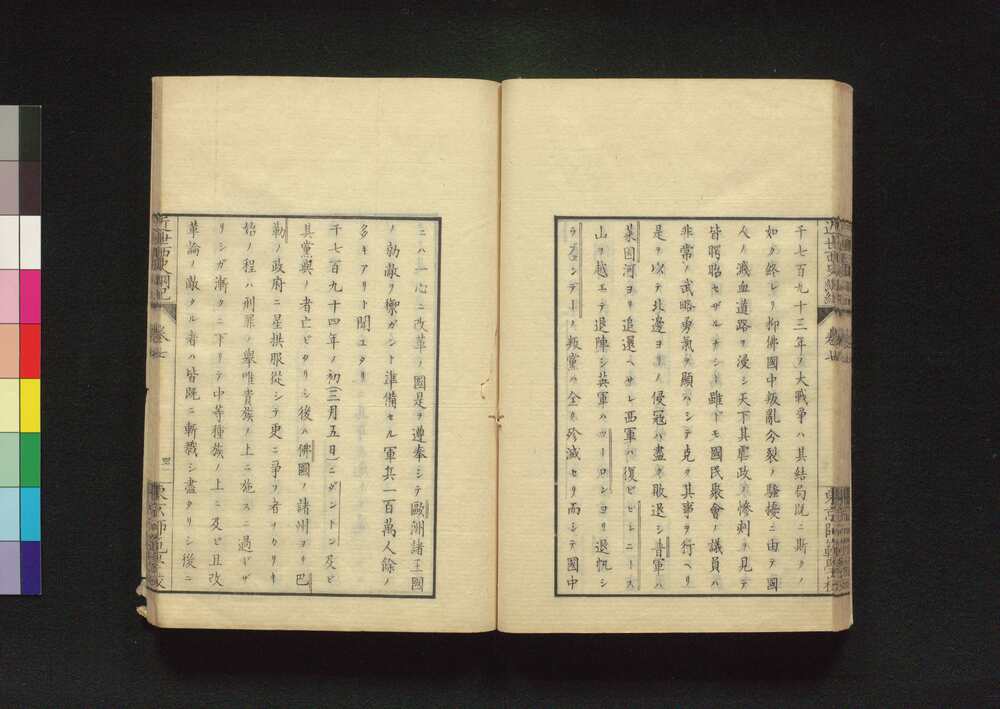 千七百九十三年ノ大戰爭ハ其結局既ニ斯クノ
如ク終レリ抑佛國中叛亂分裂ノ騷擾ニ由テ國
人ノ濺血道路ヲ浸シ天下其虐政ノ慘刺ヲ見テ
皆愕胎セザルナシト雖ドモ國民聚會ノ議員ハ
非常ノ武略勇氣ヲ顯ハシテ克ク其事ヲ行ヘリ
是ヲ以テ北邊ヨリノ侵冦ハ盡ク敗退シ普軍ハ
萊因河ヨリ追還ヘサレ西軍ハ復ビピレニース
山ヲ越エテ退陣シ英軍ハツーロンヨリ退帆シ
ラフェンデートノ叛黨ハ全ク殄滅セリ而シテ國中
ニハ一心ニ改革ノ國是ヲ遵奉シテ歐洲諸王國
ノ勍敵ヲ禦ガント準備セル軍兵一百萬人餘ノ
多キアリト聞エタリ
千七百九十四年ノ初(三月五日)ニダントン及ビ
其黨與ノ者亡ビタリシ後ハ佛國ノ諸州ヨリ巴
勒ノ政府ニ星拱服從シテ更ニ爭フ者ナカリキ
始ノ程ハ刑罪ノ舉唯貴族ノ上ニ施スニ過ギザ
リシガ漸クニ下リテ中等種族ノ上ニ及ビ且改
革論ノ敵タル者ハ皆既ニ斬戮シ盡タリシ後ニ
近世西史綱紀
卷七